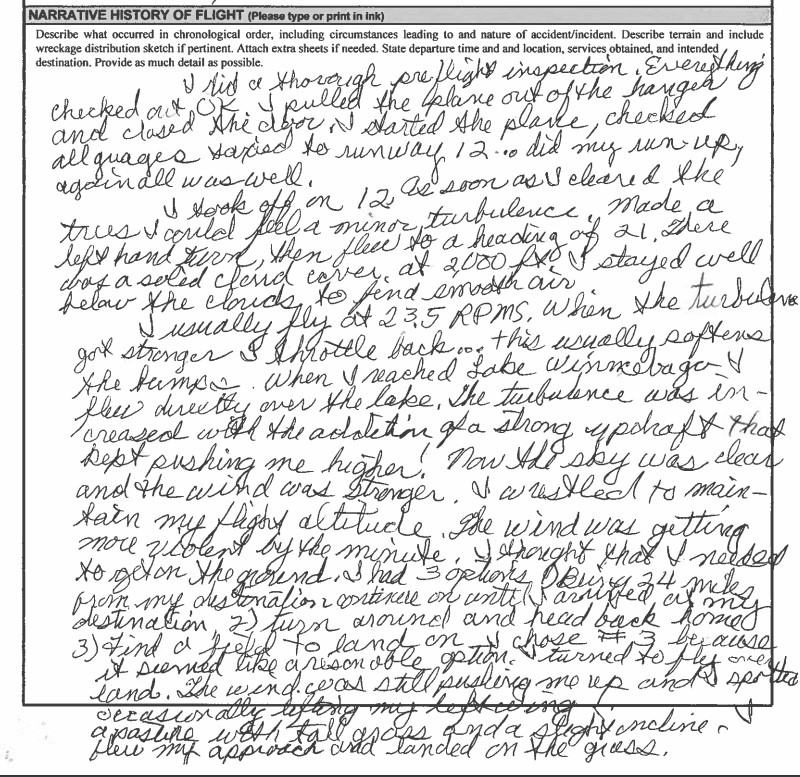 NARRATIVE HISTORY OF FLIGHT (Please type or print in ink)
Describe what occurred in chronological order, including circumstances leading to and nature of accident/incident. Describe terrain and include
wreckage distribution sketch if pertinent. Attach extra sheets if needed. State departure time and and location, services obtained, and intended
destination. Provide as much detail as possible.
I did a thorough preflight inspection. Everything
checked out OK. I pulled the plane out of the hanger
and closed the door. I started the plane, checked
all guages taxied to runway 12... did my run-up,
again all was well.
I took off on 12. As soon as I cleared the
trees I could feel a minor turbulence. Made a
left hand turn, then flew to a heading of 21. There
was a solid cloud cover at 2,000 ft. I stayed well
below the clouds to find smooth air
I usually fly at 23.5 RPMS. When the turbulence
got stronger I throttle back... this usually softens
the bumps. When I reached Lake Winnebago I
flew directly over the lake. The turbulence was in-
creased with the addition of a strong updraft that
kept pushing me higher! Now the sky was clear
and the wind was stronger. I wrestled to main-
tain my flight altitude. The wind was getting
more violent by the minute. I thought that I needed
to get on the ground. I had 3 options 1) Being 24 miles
from my destination continue on until I arrived at my
destination 2) turn around and head back home
3) Find a field to land on I chose # 3 because
it seemed like a reasonable option. I turned to fly over
land. The wind was still pushing me up and I spotted
occasionally lifting my left wing I
a pasture with tall grass and a slight incline -
flew my approach and landed on the grass.